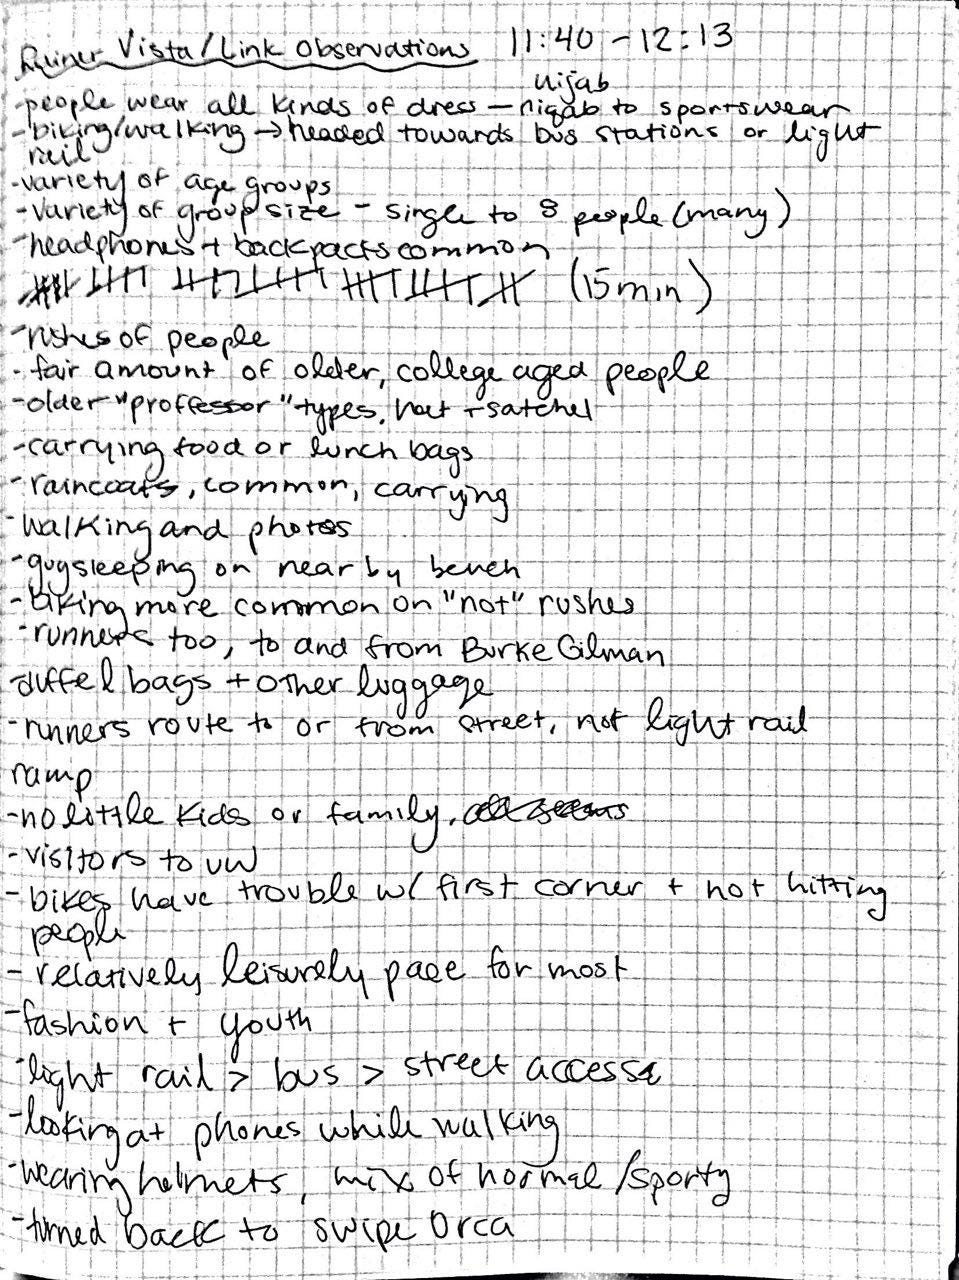 Rainer Vista/Link Observations 11:40 - 12:13
hijab
-people wear all kinds of dress - niqab to sportswear
-biking/walking → headed towards bus stations or light
rail
-variety of age groups
-variety of group size - single to 8 people (many)
-headphones + backpacks common
(15 min)
-rushes of people
-fair amount of older, college aged people
-older "proffessor" types, hat + satchel
-carrying food or lunch bags
-raincoats, common, carrying
-walking and photos
-guy sleeping on nearby bench
-biking more common on "not" rushes
-runners too, to and from Burke Gilman
-duffel bags + other luggage
-runners route to or from street, not light rail
ramp
-no little kids or family.
-visitors to UW
-bikes have trouble w/ first corner + not hitting
people
-relatively leisurely pace for most
-fashion + youth
-light rail > bus > street access
-looking at phones while walking
-wearing helmets, mix of normal/sporty
-turned back to swipe Orca